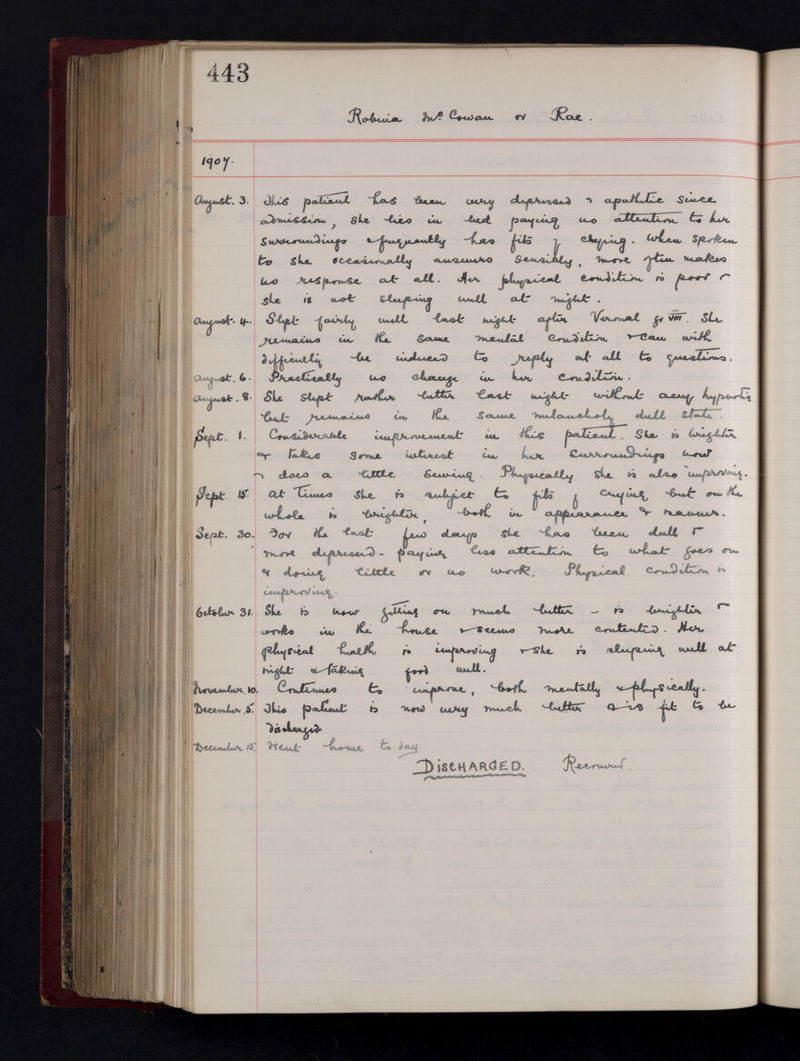 443
Robina McCowan or Rae.
1907.
August. 3. This patient has been very depressed & apathetic since
admission, she lies in bed paying no attention to her
surroundings & frequently has fits of crying. When spoken
to she occasionally answers sensibly, more often makes
no response at all. Her physical condition is poor &
she is not sleeping well at night.
August. 4. Slept fairly well last night after Veronal gr VIII. She
remains in the same mental condition & can with
difficulty be induced to reply at all to questions.
August. 6. Practically no change in her condition.
August. 8. She slept rather better last night without any hypnotic
but remains in the same melancholy dull state.
Sept. 1. Considerable improvement in this patient. She is brighter
& takes some interest in her surroundings now
& does a little sewing. Physically she is also improving.
Sept. 15. At times she is subject to fits of crying but on the
whole is brighter, both in appearance & manner.
Sept. 30. For the last few days she has been dull &
more depressed - paying less attention to what goes on
& doing little or no work. Physical condition is
improving.
October 31. She is now getting on much better - is brighter &
works in the house & seems more contented. Her
physical health is improving & she is sleeping well at
night & taking food well.
November 10. Continues to improve, both mentally & physically.
December 5. This patient is now very much better & is fit to be
discharged
December 15. Went home to-day.
DISCHARGED. Recovered.